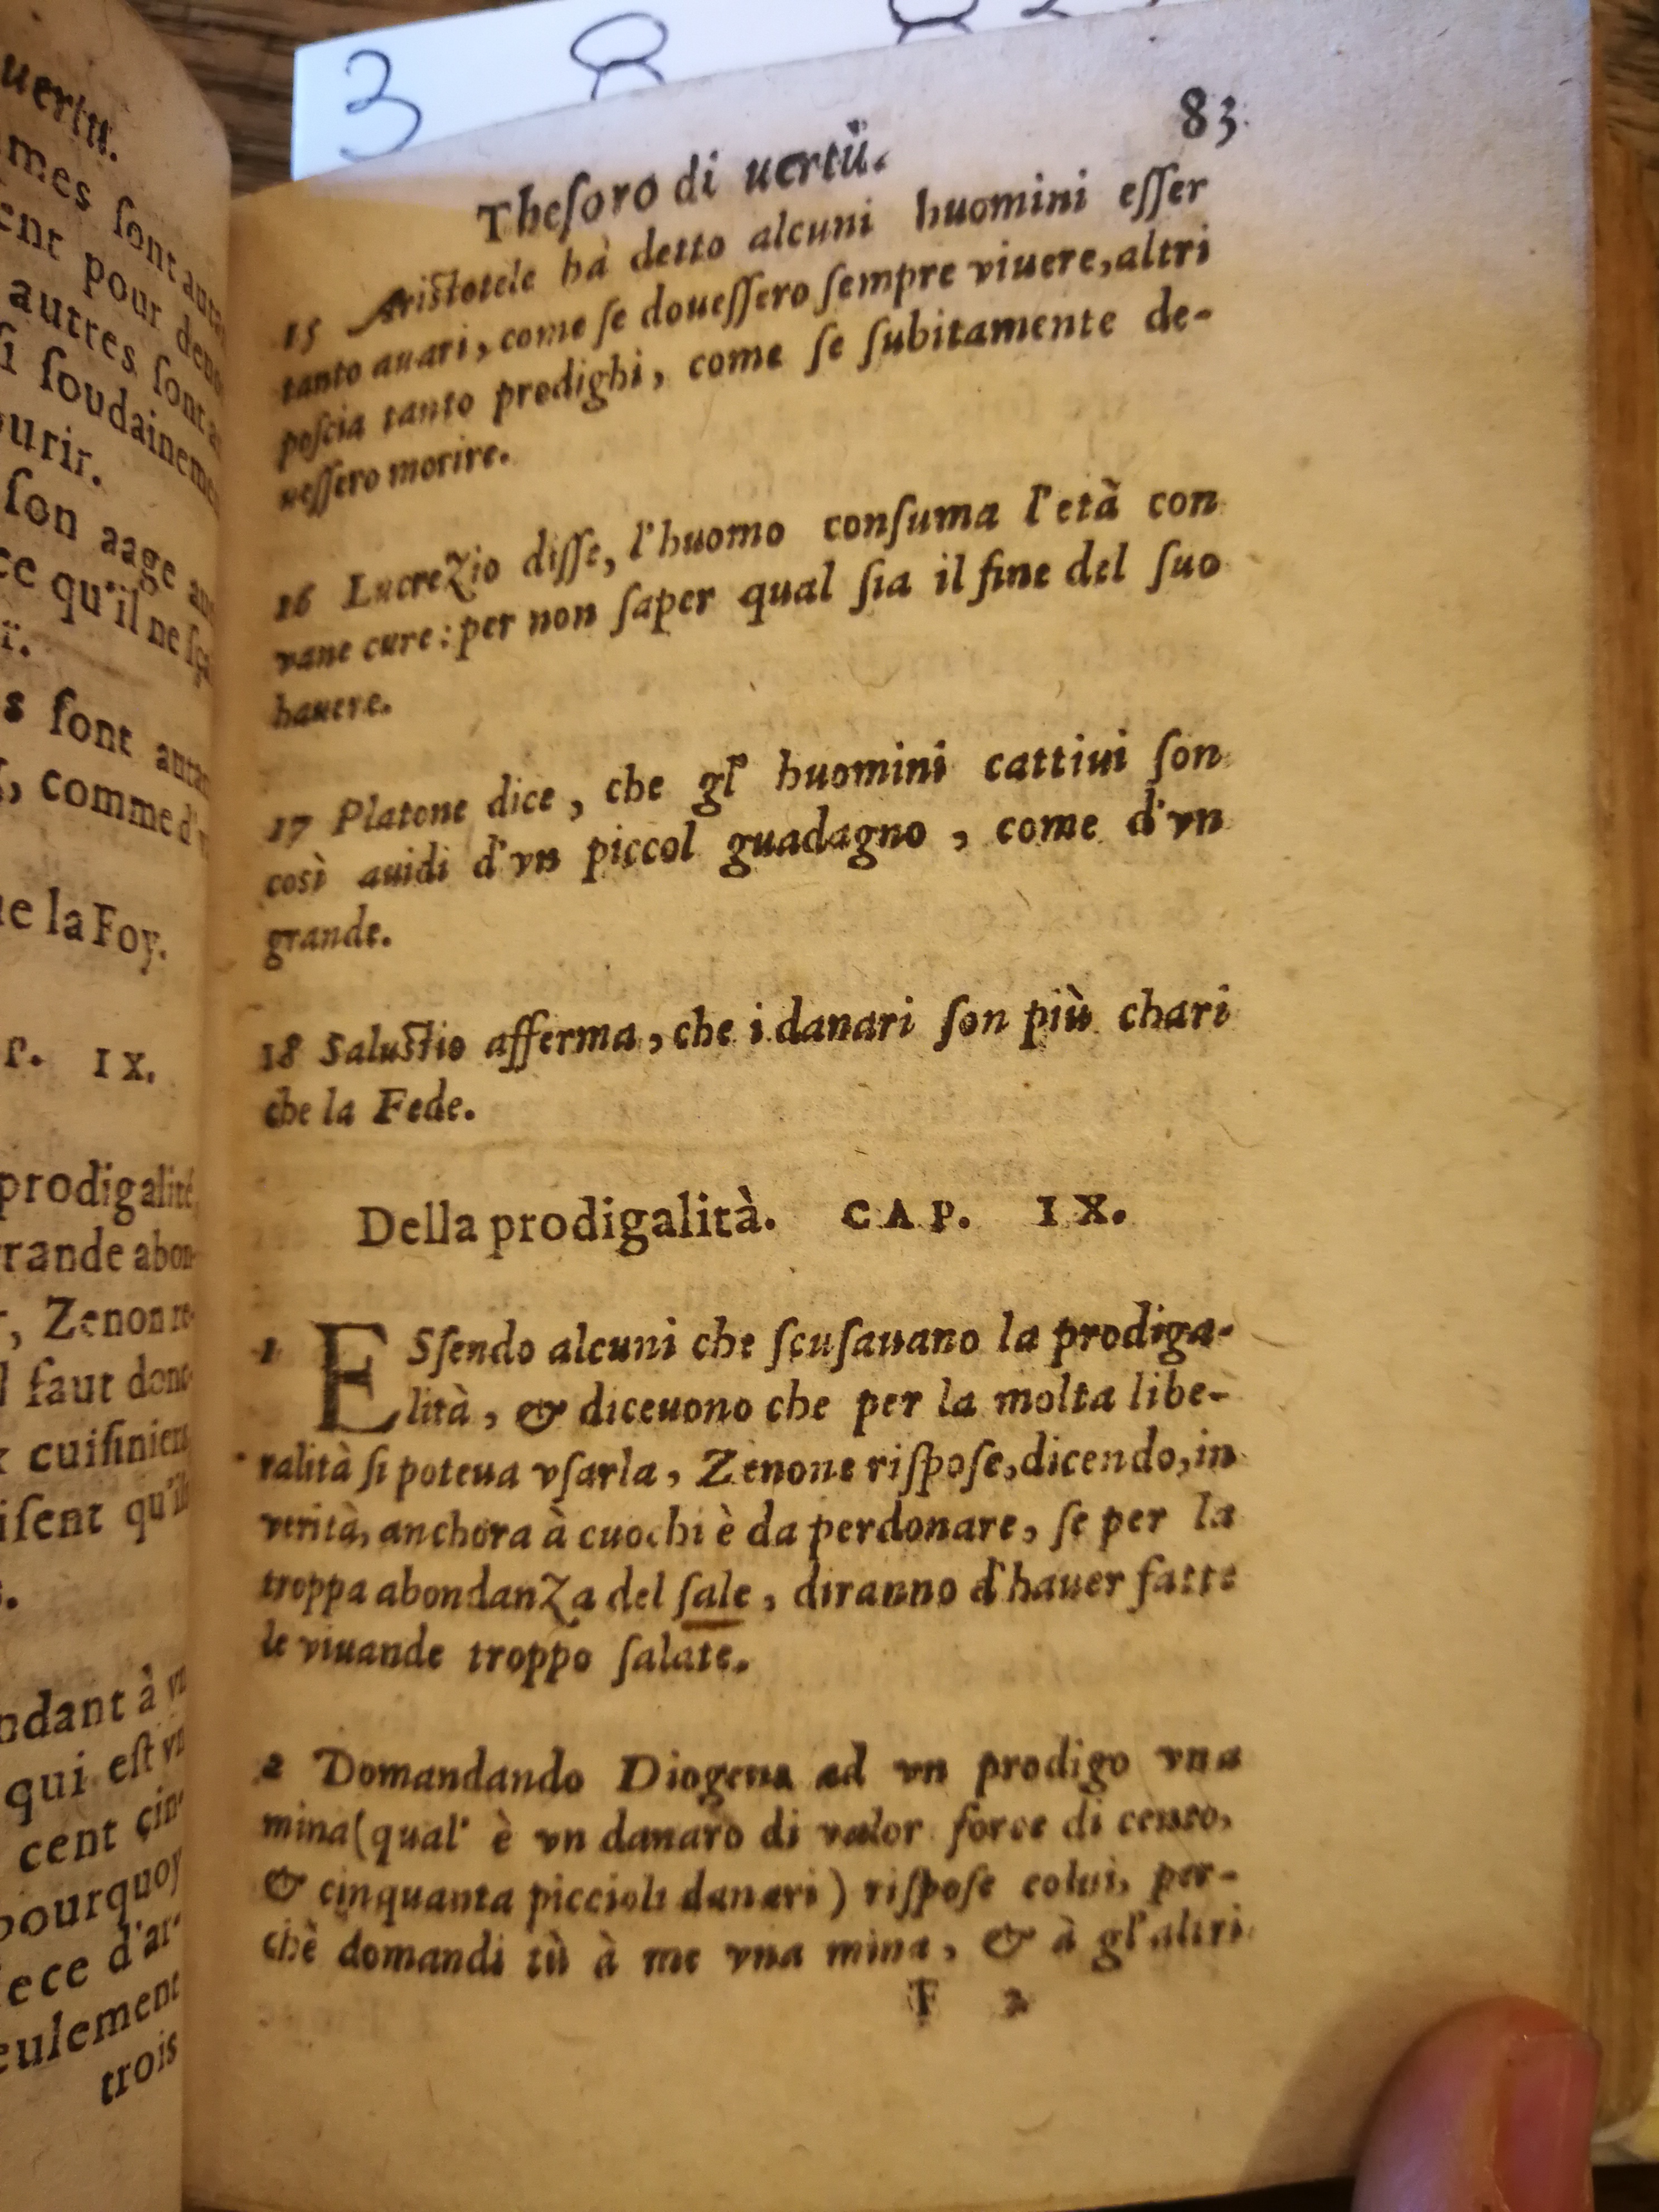 3 8
uertu.
mes ſont auta
ent pour deu
autres ſont a
ſi ſoudaineme
ourir.
ſon aage au
ce qu'il ne ſça
ir.
s ſont autan
, comme d'v
ue la Foy.
P. IX.
prodigalité,
rande abon-
r, Zenon re-
l faut donc
x cuiſiniers
iſent qu'ils
ndant à vn
qui eſt vn
cent cin-
pourquoy
iece d'ar-
eulement
trois
83
Theſoro di uertù.
15 Ariſtotele hà detto alcuni huomini eſſer
tanto auari, come ſe doueſſero ſempre viuere, altri
poſcia tanto prodighi, come ſe ſubitamente de-
ueſſero morire.
16 Lucrezio diſſe, l'huomo conſuma l'età con
vane cure: per non ſaper qual ſia il fine del ſuo
hauere.
17 Platone dice, che gl' huomini cattiui ſon
così auidi d'vn piccol guadagno, come d'vn
grande.
18 Saluſtio afferma, che i danari ſon più chari
che la Fede.
Della prodigalità. CAP. IX.
1 ESſendo alcuni che ſcuſauano la prodiga-
lità, & diceuono che per la molta libe-
ralità ſi poteua vſarla, Zenone riſpoſe, dicendo, in
verità, anchora à cuochi è da perdonare, ſe per la
troppa abondanza del ſale, diranno d'hauer fatte
le viuande troppo ſalate.
2 Domandando Diogena ad vn prodigo vna
mina (qual' è vn danaro di valor forſe di cento,
& cinquanta piccioli danari) riſpoſe colui, per-
chè domandi tù à me vna mina, & à gl'altri
F 2